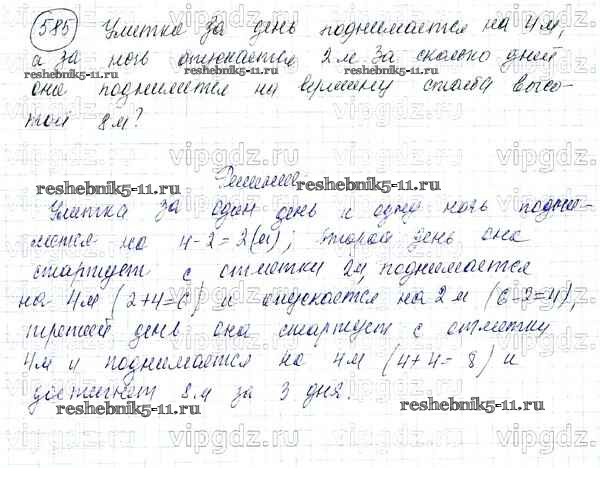 585 Улитка за день поднимается на 4 м,
а за ночь опускается 2 м. За сколько дней
она поднимется на вершину столба высо-
той 8 м?
Решение
Улитка за один день и одну ночь подни-
мется на 4-2=2(м); второй день она
стартует с отметки 2м, поднимается
на 4м (2+4=6) и опускается на 2 м (6-2=4),
третий день она стартует с отметки
4м и поднимается на 4м (4+4=8) и
достигнет 8м за 3 дня.
reshebnik5-11.ru
reshebnik5-11.ru
reshebnik5-11.ru
reshebnik5-11.ru
reshebnik5-11.ru
reshebnik5-11.ru
vipgdz.ru